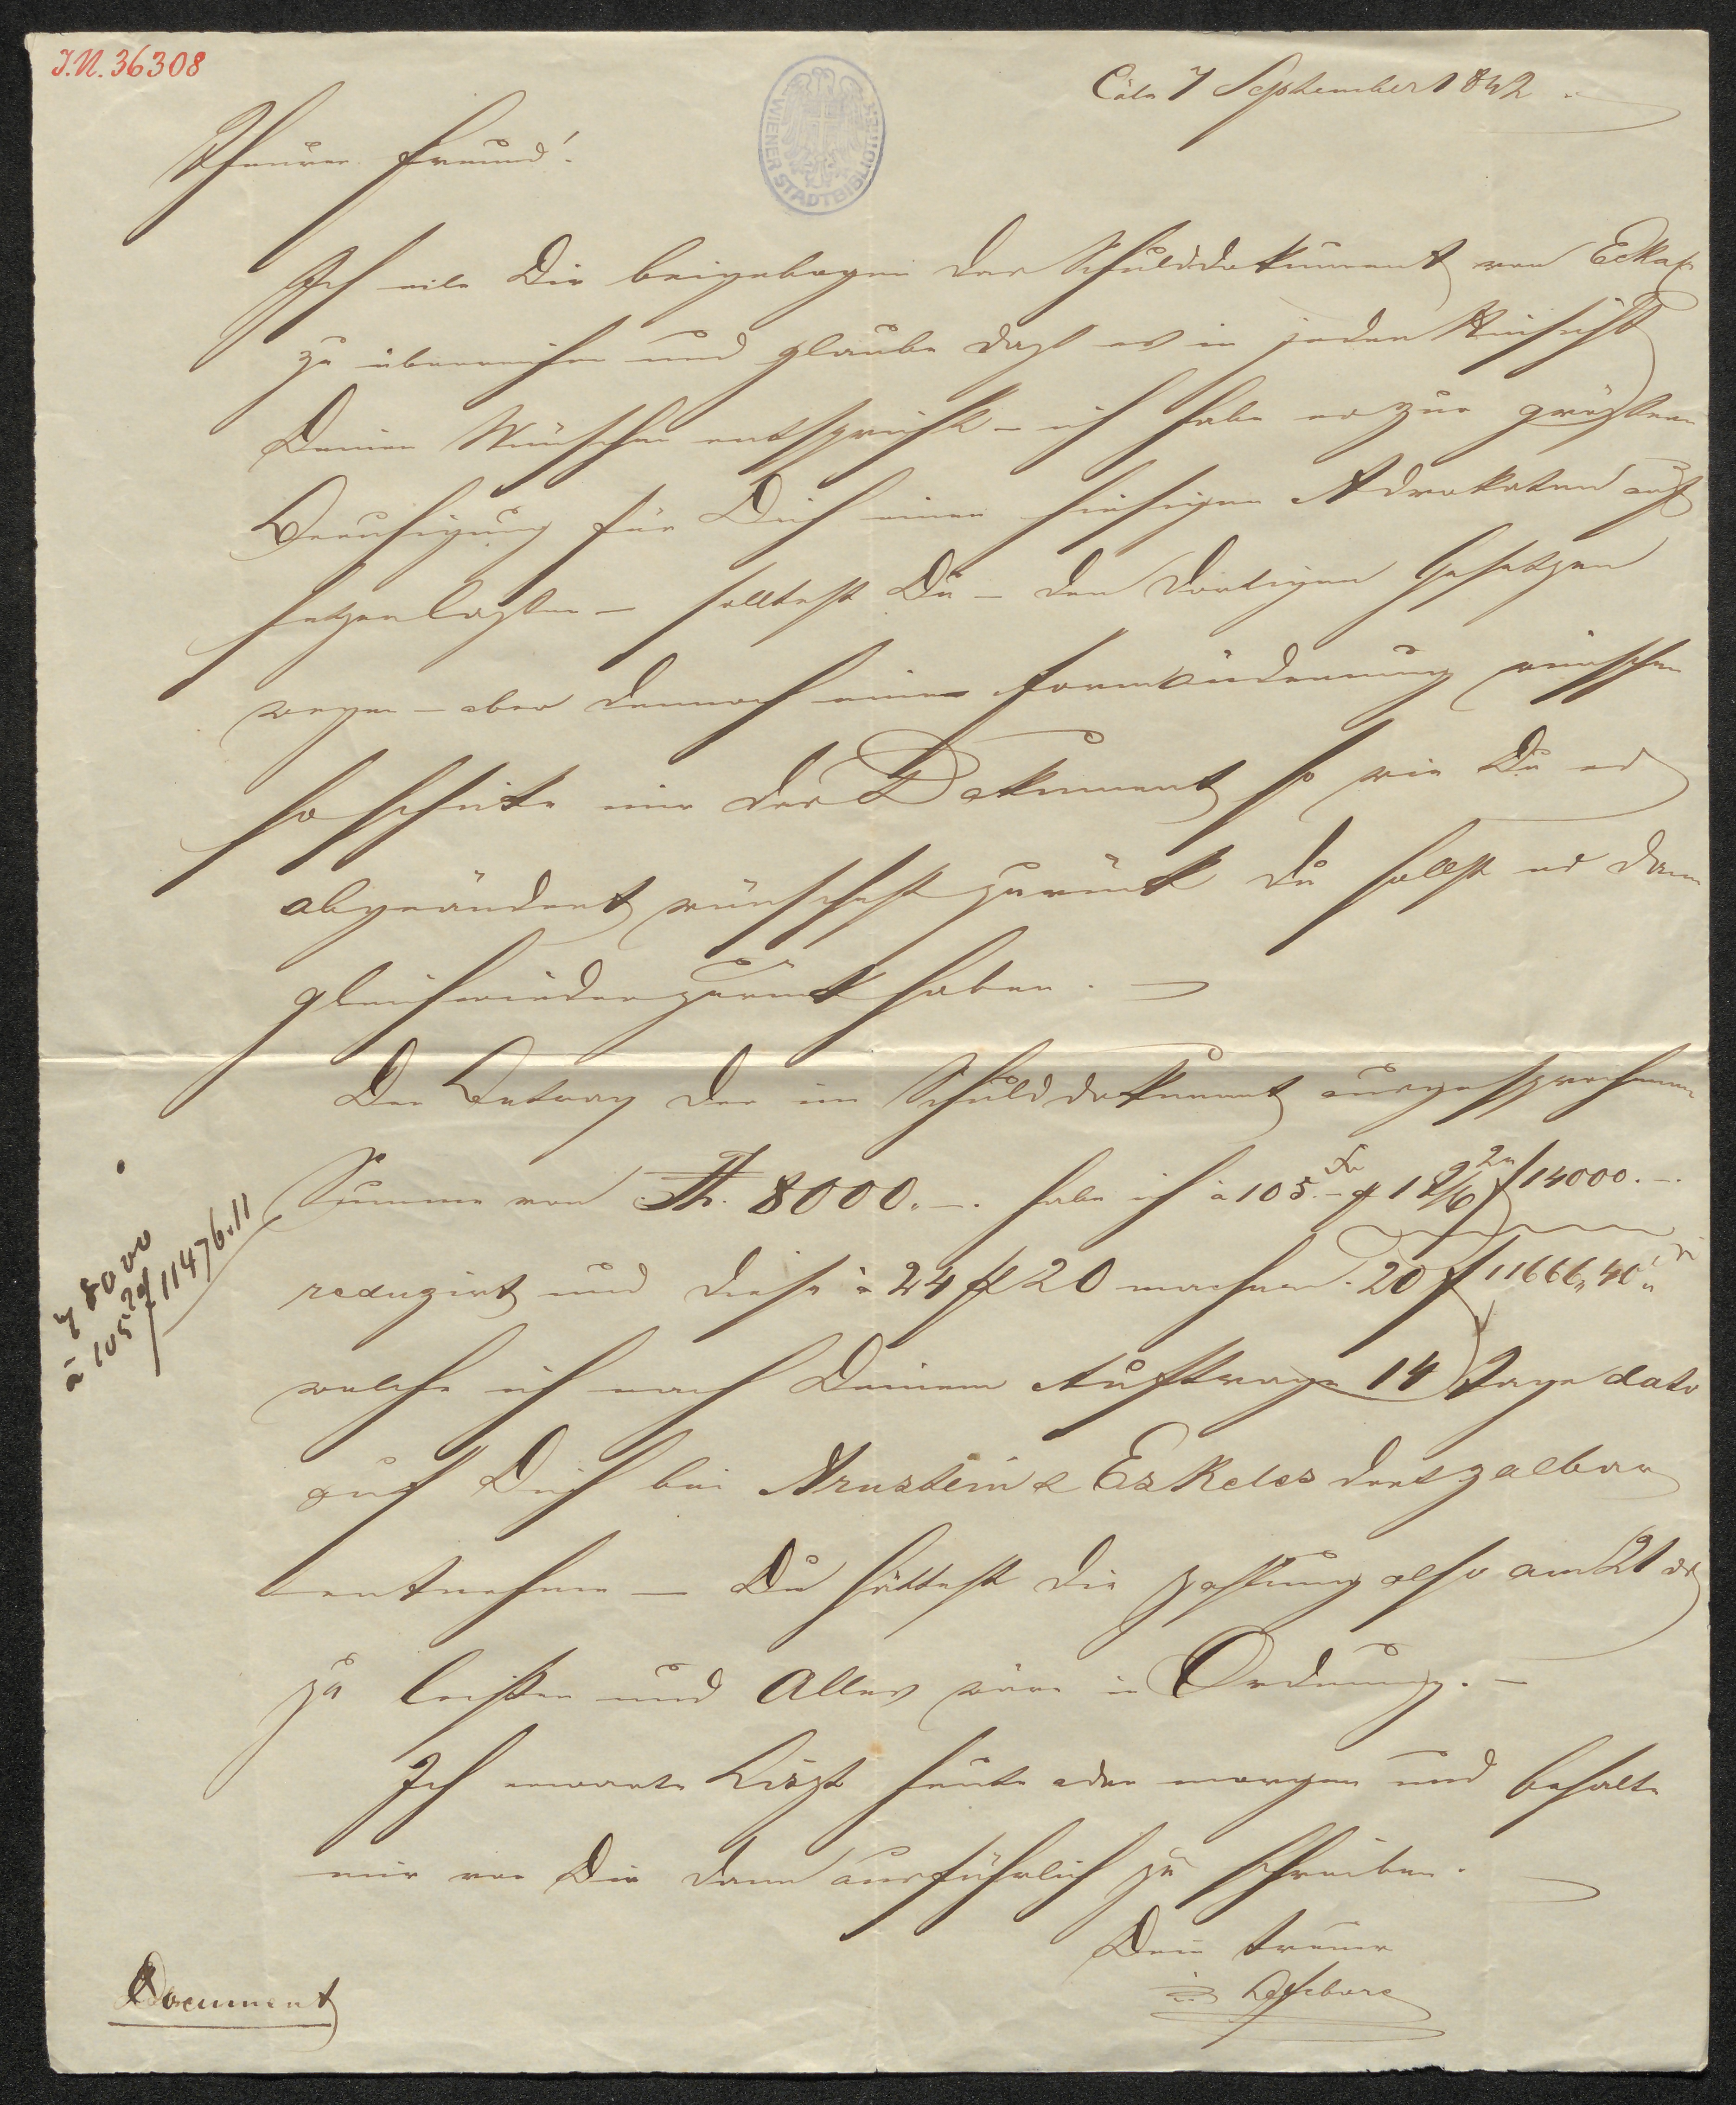 J.N. 36308
WIENER STADTBIBLIOTHEK
Cöln 7 September 1842
Theurer Freund!
Ich eile Dir beigebogen das Schulddokument von
zu überreichen und glaube daß es in jeder Hinsicht
Deinen Wünschen entspricht – ich habe es zur größeren
Beruhigung für Dich einen hiesigen Advokaten auf
setzen laßen – solltest Du – den dortigen Gesetzen
wegen – aber dennoch eine Formveränderung wünschen
so schicke mir das Dokument so wie Du es
abgeändert wünschest zurück Du sollst es dann
gleich wieder zurück haben. –
Den Betrag der im Schulddokument ausgesprochenen
Summe von Th. 8000.–. habe ich à 105.– f 14000.–.
reduzirt und diese à 24 fl 20 machen 20 f 11666,,40
welche ich nach Deinem Auftrage 14 Tage dato
auf Dich bei Arnstein & Eskeles dort zalbar
entnehme – Du hättest die Zahlung also am 21 ds
zu leisten und Alles wäre in Ordnung. –
Ich erwarte Liszt heute oder morgen und behalte
mir vor Dir dann ausführlich zu schreiben.
Dein treuer
Lefebure
Document
8000
à 105 11476.11